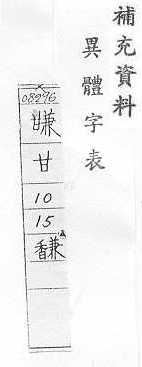 補充資料
異體字表
08296
甘
10
15
馦